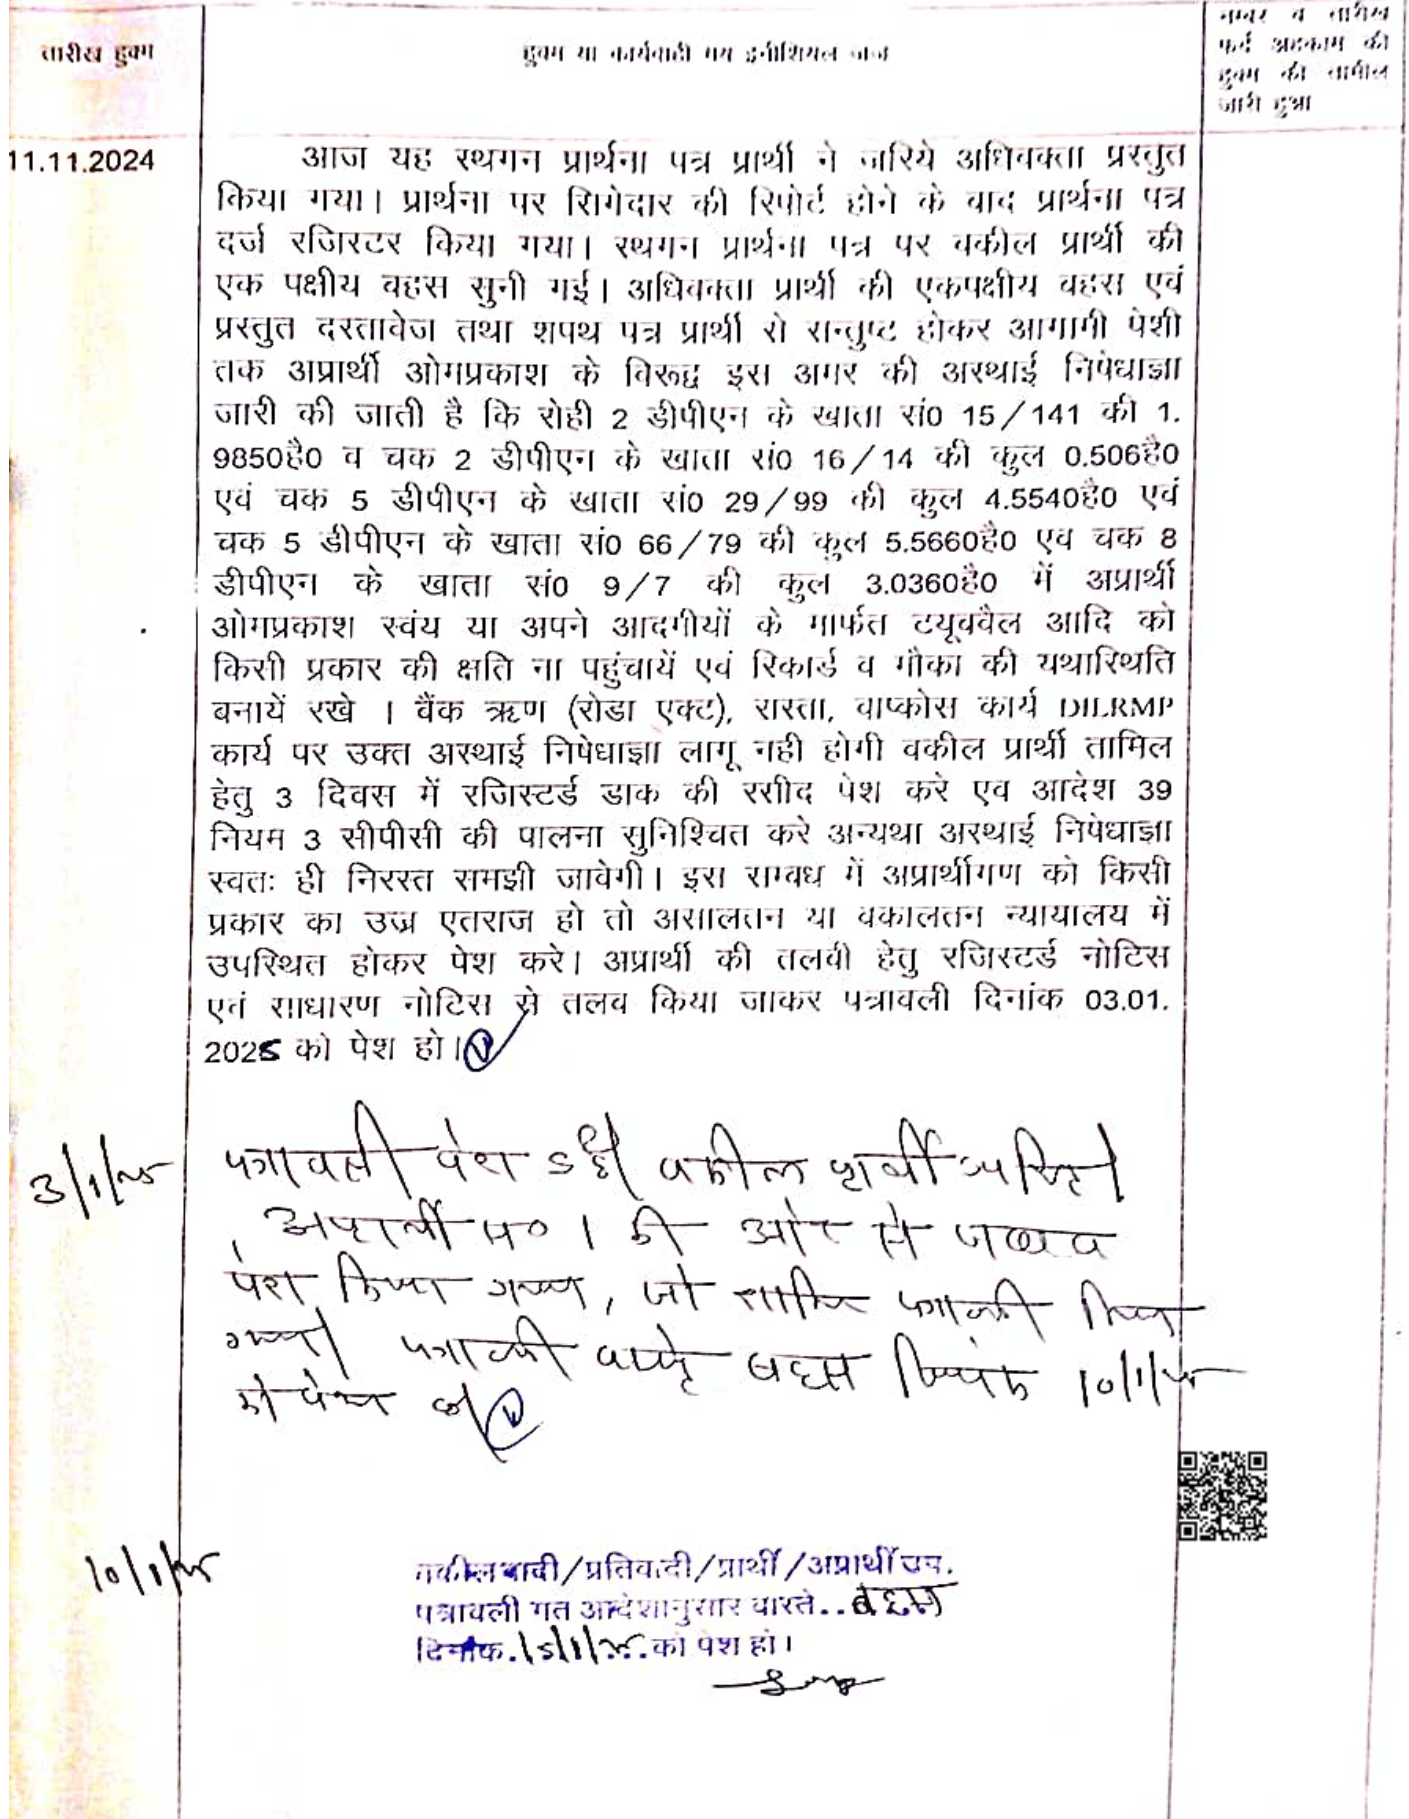 तारीख हुक्म
हुक्म या कार्यवाही मय इनीशियल जज
नम्बर व तारीख
फर्द अहकाम की
हुक्म की तामील
जारी हुआ
11.11.2024
आज यह स्थगन प्रार्थना पत्र प्रार्थी ने जरिये अधिवक्ता प्रस्तुत
किया गया। प्रार्थना पर सिगेदार की रिपोर्ट होने के बाद प्रार्थना पत्र
दर्ज रजिस्टर किया गया। स्थगन प्रार्थना पत्र पर वकील प्रार्थी की
एक पक्षीय बहस सुनी गई। अधिवक्ता प्रार्थी की एकपक्षीय बहस एवं
प्रस्तुत दस्तावेज तथा शपथ पत्र प्रार्थी से सन्तुष्ट होकर आगामी पेशी
तक अप्रार्थी ओमप्रकाश के विरूद्ध इस अमर की अस्थाई निषेधाज्ञा
जारी की जाती है कि रोही 2 डीपीएन के खाता सं0 15/141 की 1.
9850है0 व चक 2 डीपीएन के खाता सं0 16/14 की कुल 0.506है0
एवं चक 5 डीपीएन के खाता सं0 29/99 की कुल 4.5540है0 एवं
चक 5 डीपीएन के खाता सं0 66/79 की कुल 5.5660है0 एव चक 8
डीपीएन के खाता सं0 9/7 की कुल 3.0360है0 में अप्रार्थी
ओमप्रकाश स्वंय या अपने आदमीयों के मार्फत टयूबवैल आदि को
किसी प्रकार की क्षति ना पहुंचायें एवं रिकार्ड व मौका की यथास्थिति
बनायें रखे । बैंक ऋण (रोडा एक्ट), रास्ता, वाप्कोस कार्य DILRMP
कार्य पर उक्त अस्थाई निषेधाज्ञा लागू नही होगी वकील प्रार्थी तामिल
हेतु 3 दिवस में रजिस्टर्ड डाक की रसीद पेश करे एव आदेश 39
नियम 3 सीपीसी की पालना सुनिश्चित करे अन्यथा अस्थाई निषेधाज्ञा
स्वतः ही निरस्त समझी जावेगी। इस सम्बध में अप्रार्थीगण को किसी
प्रकार का उज्र एतराज हो तो असालतन या वकालतन न्यायालय में
उपस्थित होकर पेश करे। अप्रार्थी की तलबी हेतु रजिस्टर्ड नोटिस
एवं साधारण नोटिस से तलब किया जाकर पत्रावली दिनांक 03.01.
2025 को पेश हो।
3/1/25
पत्रावली पेश हुई। वकील प्रार्थी उपस्थित।
अप्रार्थी सं० 1 की ओर से जवाब
पेश किया गया, जो शामिल पत्रावली किया
गया। पत्रावली वास्ते बहस दिनांक 10/1/25
को पेश हो।
10/1/25
वकील वादी/प्रतिवादी/प्रार्थी/अप्रार्थी उप.
पत्रावली गत आदेशानुसार वास्ते..बहस
दिनांक.15/1/25..को पेश हो।